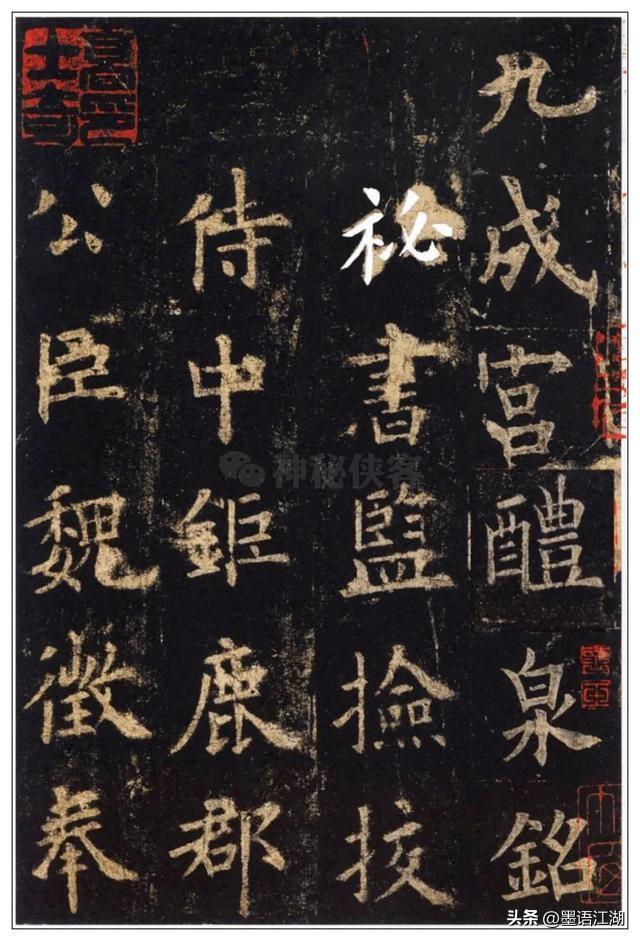 九成宮醴泉銘
祕書監撿挍
侍中鉅鹿郡
公臣魏徵奉
神秘侠客
头条 @墨语江湖